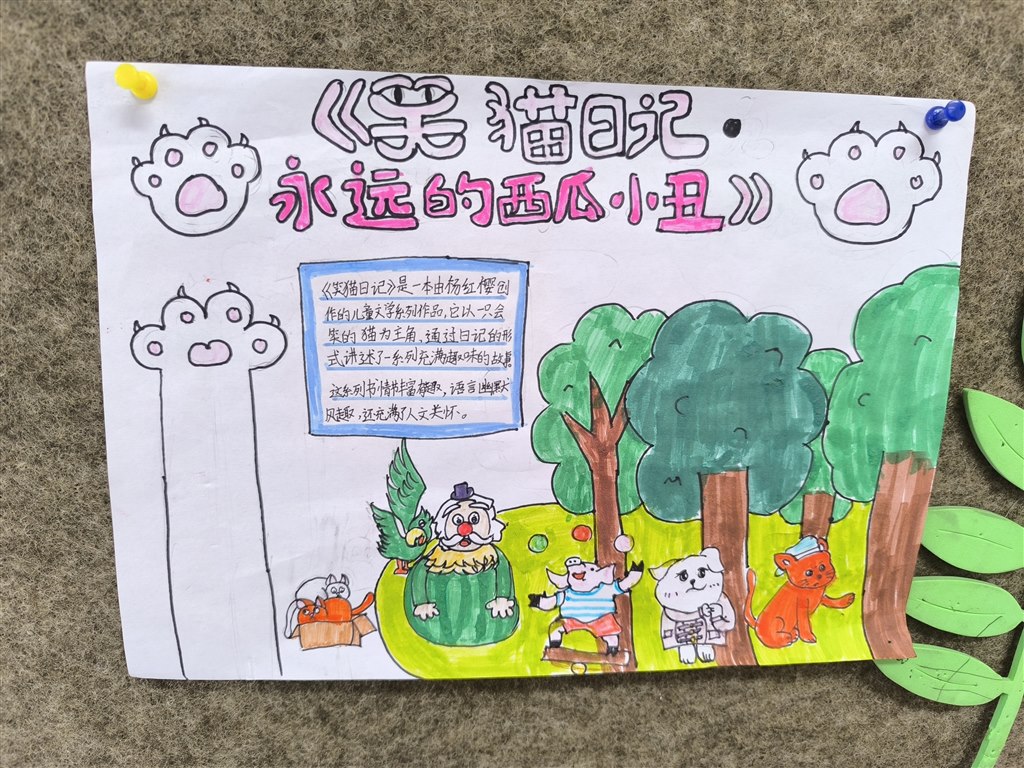 《笑猫日记·
永远的西瓜小丑》
《笑猫日记》是一本由杨红樱创
作的儿童文学系列作品,它以一只会
笑的猫为主角,通过日记的形
式讲述了一系列充满趣味的故事。
这系列书情节丰富有趣,语言幽默
风趣,还充满了人文关怀。